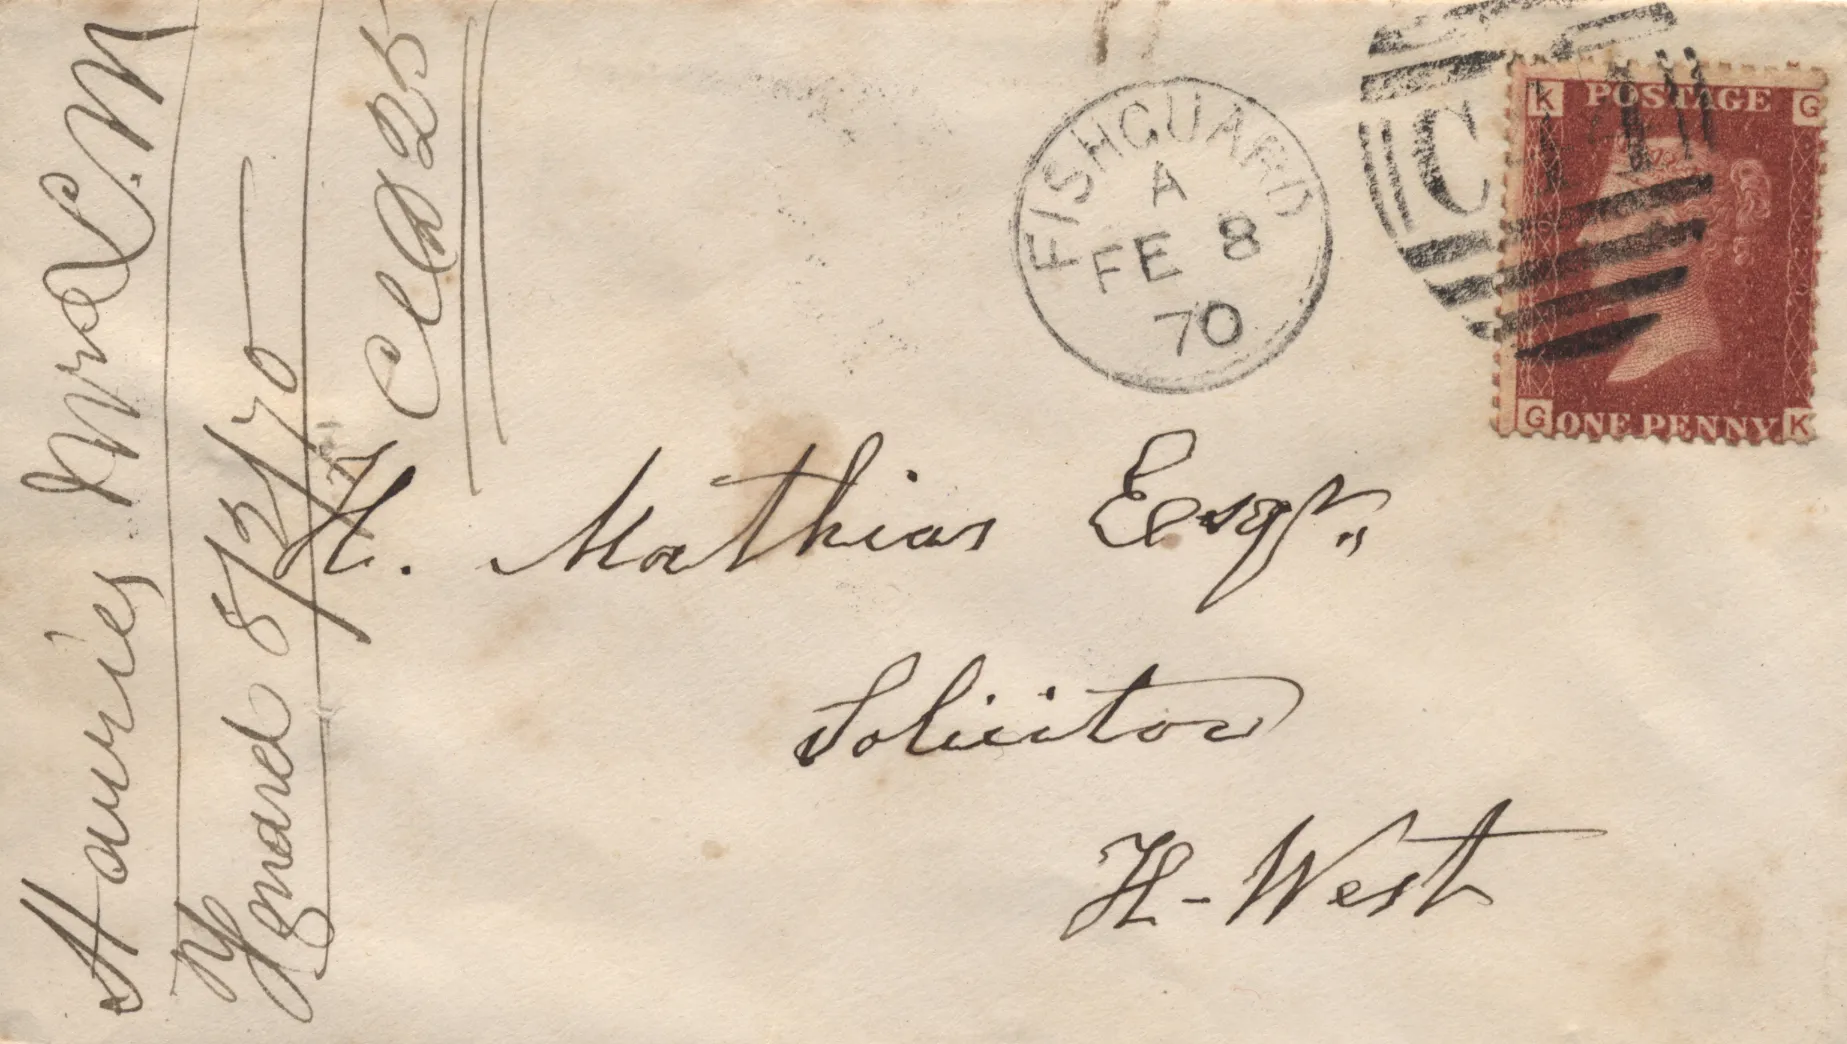 Harries Mrs L. M
Fguard 8/2/70
FISHGUARD
A
FE 8
70
K POSTAGE G
G ONE PENNY K
H. Mathias Esqr.,
Solicitor
H-West